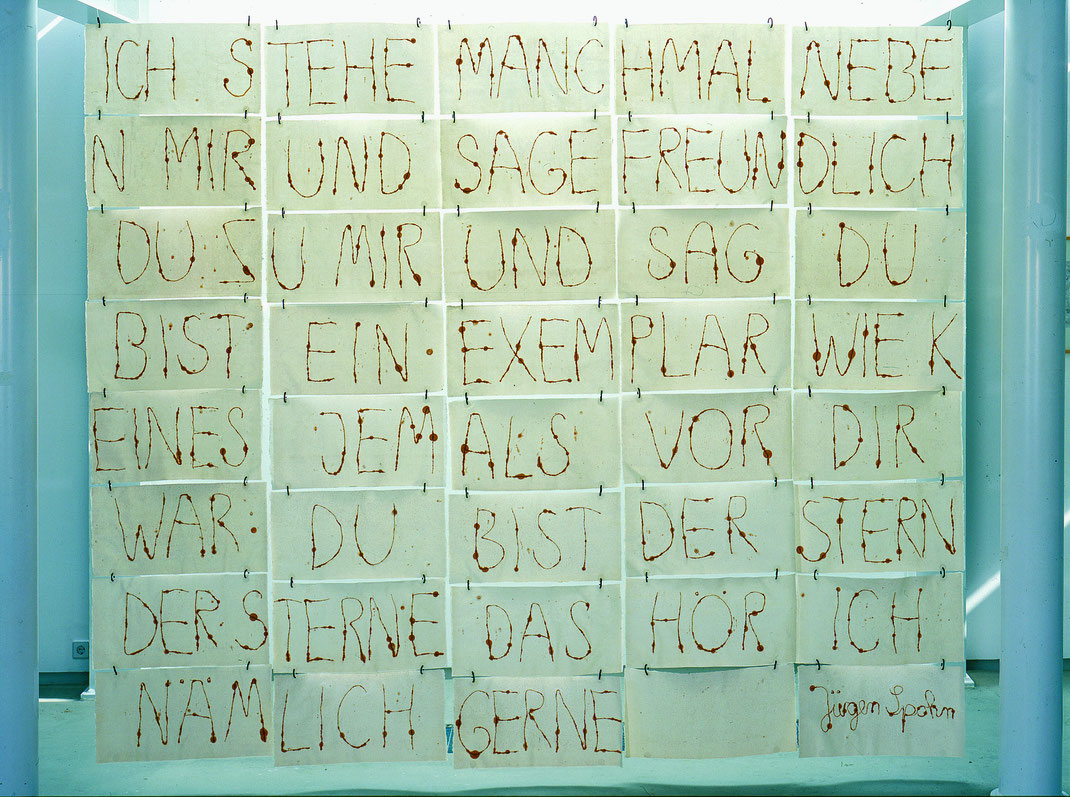 ICH STEHE MANCHMAL NEBE
N MIR UND SAGE FREUNDLICH
DU ZU MIR UND SAG DU
BIST EIN EXEMPLAR WIE K
EINES JEMALS VOR DIR
WAR DU BIST DER STERN
DER STERNE DAS HÖR ICH
NÄMLICH GERNE Jürgen Spohn